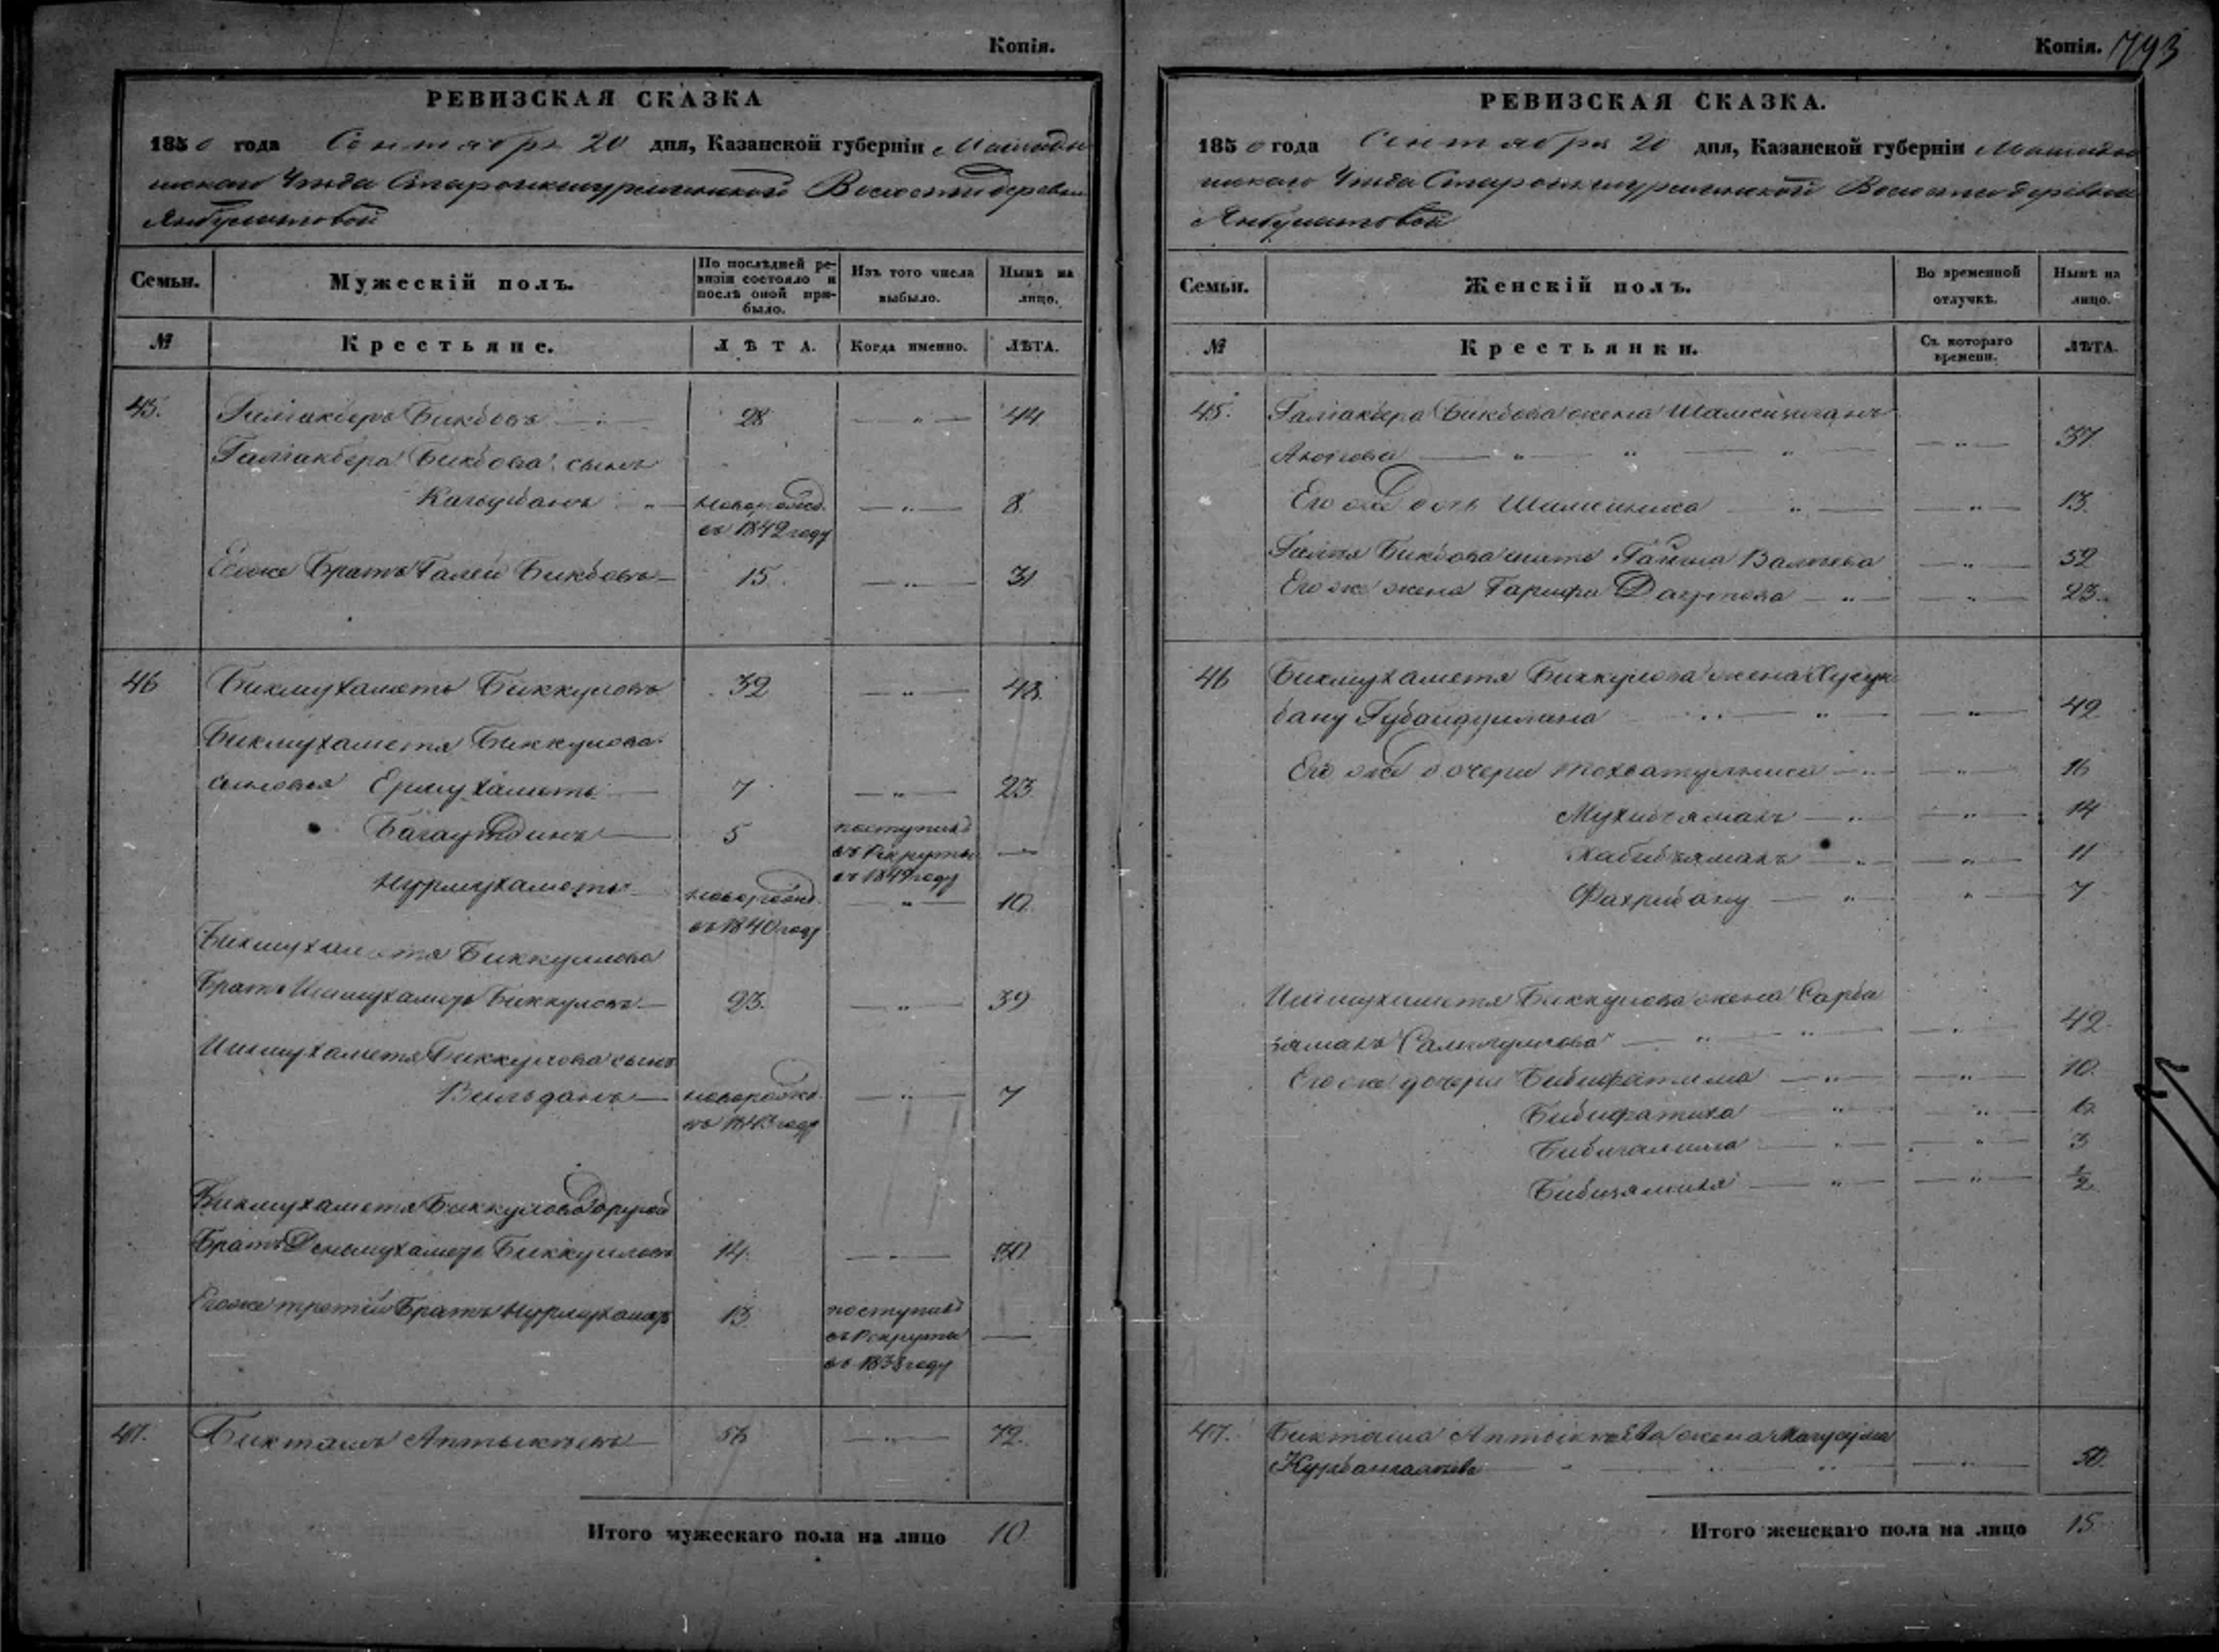 Копія.
РЕВИЗСКАЯ СКАЗКА
1850 года Сентября 20 дня, Казанской губерніи Мамады
шскаго Уезда Волости деревни
Янбулатовой
Семьи.
Мужескій полъ.
По послѣдней ре-
визіи состояло и
послѣ оной при-
было.
Изъ того числа
выбыло.
Нынѣ на
лицо.
№
Крестьяне.
ЛѢТА.
Когда именно.
ЛѢТА.
45. Галіакберъ Бикбовъ 28 — „ — 44
Галіакбера Бикбова сынъ
Кагырбанъ „ — новорожд. — „ — 8.
въ 1842 году
Егоже Братъ Галей Бикбовъ — 15. — „ — 31
46 Бикмухаметъ Биккуловъ 32 — „ — 48.
Бикмухаметя Биккулова
сыновья Ермухаметь — 7 — „ — 23.
Багаутдинъ — 5 поступилъ
въ Рекруты —
въ 1849 году
Нурмухаметь — новорожд. — „ — 10.
въ 1840 году
Бикмухаметя Биккулова
Братъ Ишмухаметъ Биккуловъ — 23. — „ — 39
Ишмухаметя Биккулова сынъ
Вильданъ — новорожд. — „ — 7
въ 1843 году
Бикмухаметя Биккулова Другой
Братъ Денмухаметъ Биккуловъ 14. — „ — 30
Егоже третій Братъ Нурмухаметъ 13 поступилъ
въ Рекруты —
въ 1838 году
47. Бикташъ Аптыкѣевъ — 56 — „ — 72.
Итого мужескаго пола на лицо 10.
Копія. 793
РЕВИЗСКАЯ СКАЗКА.
1850 года Сентября 20 дня, Казанской губерніи Мамады
шскаго Уезда Волости деревни
Янбулатовой
Семьи.
Женскій полъ.
Во временной
отлучкѣ.
Нынѣ на
лицо.
№
Крестьянки.
Съ котораго
времени.
ЛѢТА.
45. Галіакбера Бикбова жена
Аюпова — „ — „ — „ — — „ — 37
Его же Дочь — „ — — „ — 13.
Галея Бикбова мать Валѣева — „ — 52
Его же жена Гарифа Даутова — „ — — „ — 23.
46 Бикмухаметя Биккулова жена Хусун
бану Губайдуллина — „ — — „ — 42
Его же дочери — „ — — „ — 16
Мухибзямалъ — „ — — „ — 14
Хабибзямалъ — „ — — „ — 11
Фахрибану — „ — — „ — 7
Ишмухаметя Биккулова жена Сарби
зямалъ — „ — „ — — „ — 42.
Его же дочери Бибифатима — „ — — „ — 10.
Бибифатиха — „ — — „ — 6.
Бибигалима — „ — — „ — 3
— „ — — „ — ½
47. Бикташа Аптыкѣева жена
Курбангалѣева — „ — „ — — „ — 50.
Итого женскаго пола на лицо 15.